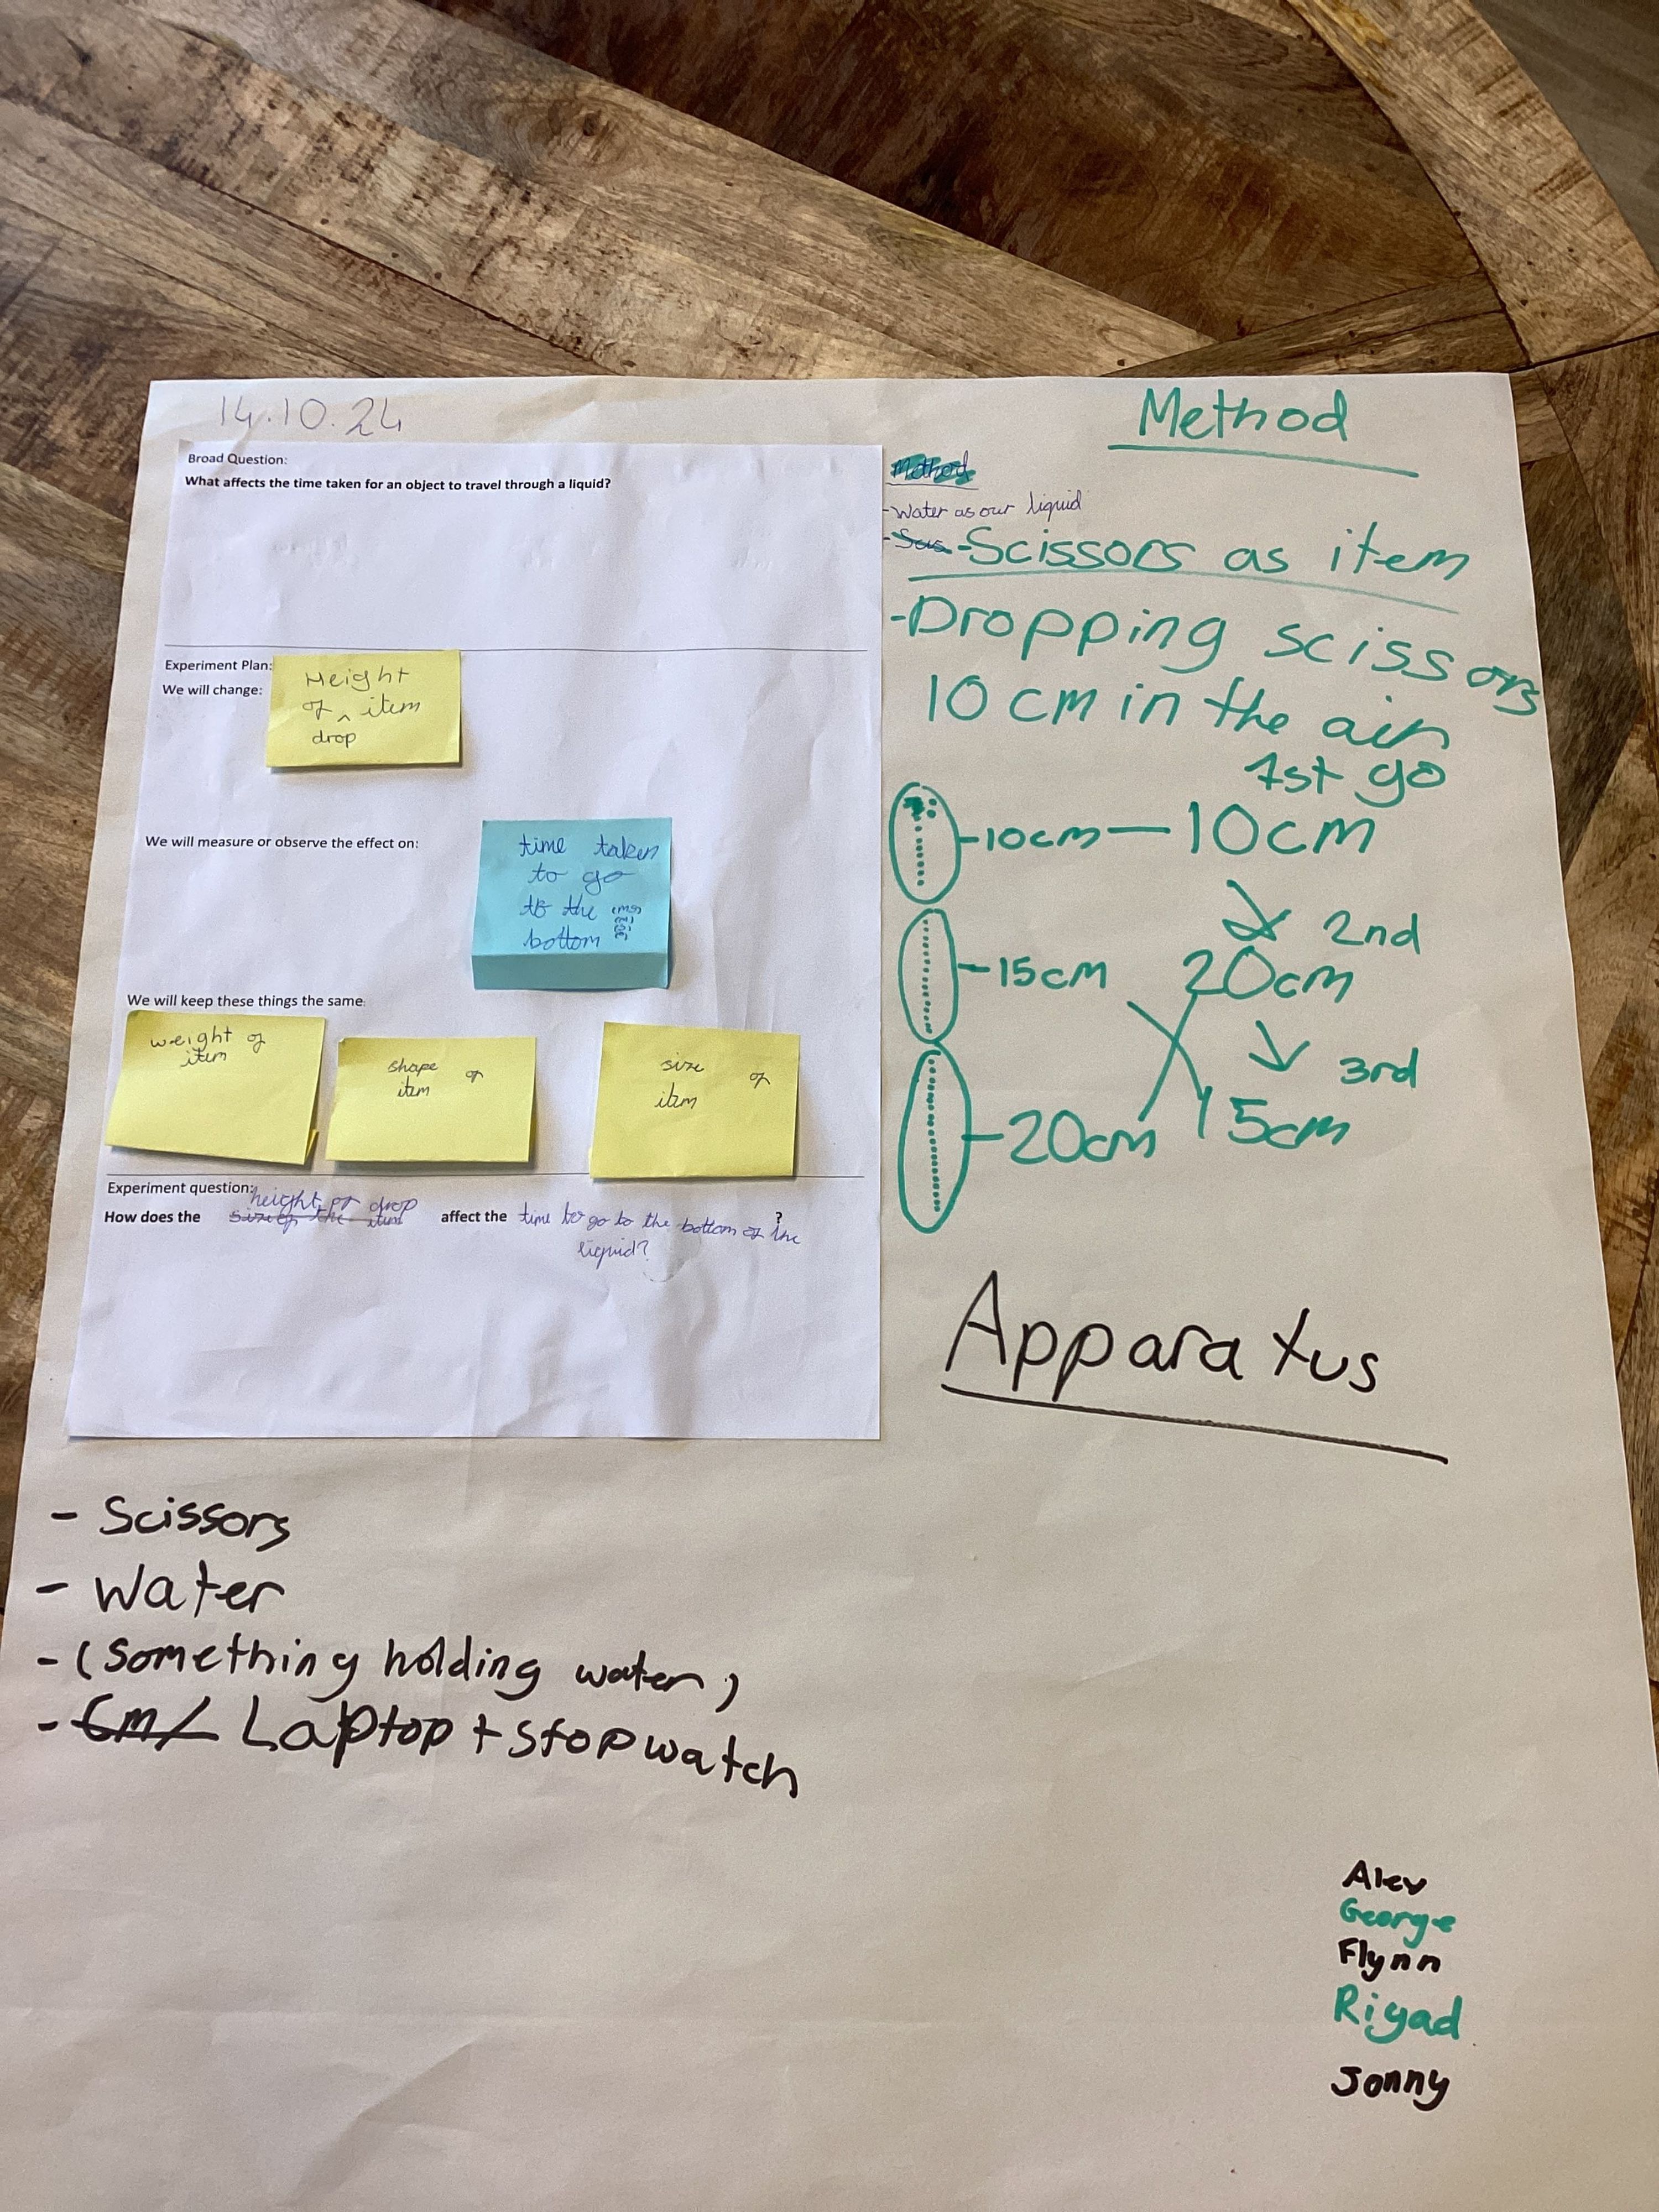 14.10.24
Broad Question:
What affects the time taken for an object to travel through a liquid?
Experiment Plan:
We will change:
Height
of ^ item
drop
We will measure or observe the effect on:
time taken
to go
to the
bottom
We will keep these things the same:
weight of
item
shape of
item
size of
item
Experiment question:
height of drop
How does the size of the item affect the time to go to the bottom of the ?
liquid?
Method
Method
- Water as our liquid
- Scis - Scissors as item
- Dropping scissors
10 cm in the air
1st go
- 10cm — 10cm
2nd
- 15cm 20cm
3rd
- 20cm 15cm
Apparatus
- Scissors
- Water
- (Something holding water)
- Cm/ Laptop + stopwatch
Alex
George
Flynn
Riyad
Jonny